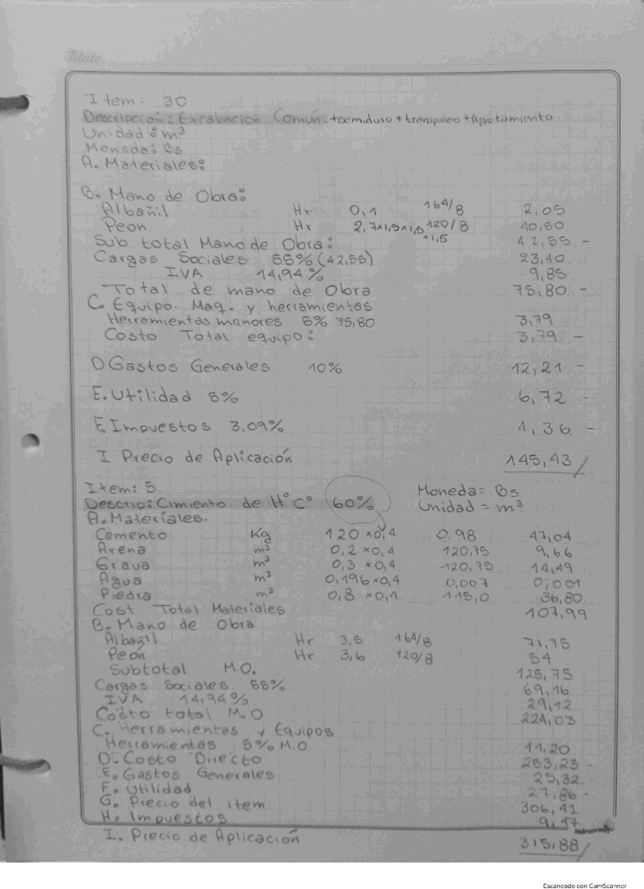 Titulo
Item: 30
Descripción: Excabación Común. +semiduro + transpaleo + Apotamiento
Unidad: m³
Moneda: Bs
A. Materiales:
B. Mano de Obra:
Albañil Hr 0,1 164/8 2,05
Peon Hr 2,7×1,5×1,5 120/8 ×1,5 40,50
Sub total Mano de Obra: 42,55 -
Cargas Sociales 55% (42,55) 23,40
IVA 14,94% 9,85
Total de mano de Obra 75,80 -
C. Equipo. Maq. y herramientas
Herramientas menores 5% 75,80 3,79
Costo Total equipo: 3,79 -
D Gastos Generales 10% 12,21 -
E. Utilidad 5% 6,72 -
F. Impuestos 3,09% 4,36 -
I Precio de Aplicación 145,43
Item: 5 Moneda = Bs
Descrip: Cimiento de H°C° 60% Unidad = m³
A. Materiales.
Cemento Kg 120 ×0,4 0,98 47,04
Arena m³ 0,2 ×0,4 120,75 9,66
Grava m³ 0,3 ×0,4 120,75 14,49
Agua m³ 0,196 ×0,4 0,007 0,001
Piedra m³ 0,8 ×0,4 115,0 36,80
Cost Total Materiales 107,99
B. Mano de Obra
Albañil Hr 3,5 164/8 71,75
Peon Hr 3,6 120/8 54
Subtotal M.O. 125,75
Cargas Sociales 55% 69,16
IVA 14,94% 29,12
Costo total M.O 224,03
C. Herramientas y Equipos
Herramientas 5% M.O 11,20
D. Costo Directo 253,23 -
E. Gastos Generales 25,32 -
F. Utilidad 27,86 -
G. Precio del item 306,41
H. Impuestos 9,47
I. Precio de Aplicación 315,88
Escaneado con CamScanner